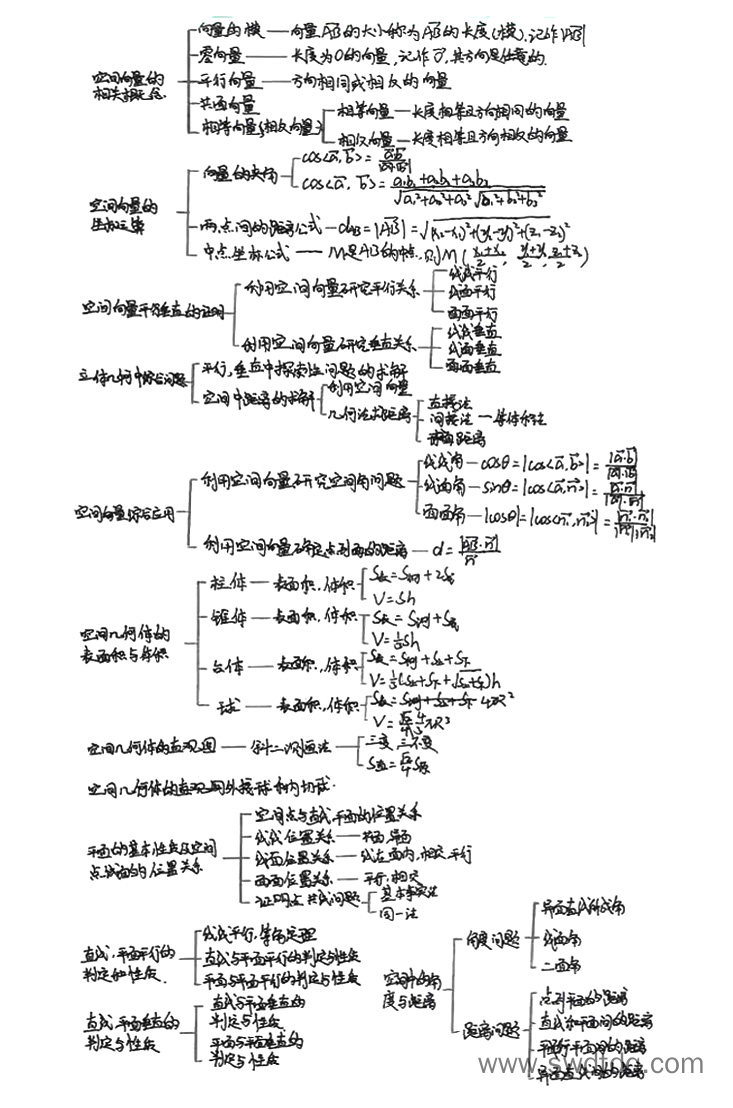 空间向量的
相关概念
向量的模 — 向量AB的大小称为AB的长度(模),记作|AB|
零向量 — 长度为0的向量,记作0,其方向是任意的.
平行向量 — 方向相同或相反的向量
共面向量
相等向量(相反向量)
相等向量 — 长度相等且方向相同的向量
相反向量 — 长度相等且方向相反的向量
空间向量的
坐标运算
向量的夹角
cos<a,b>=
cos<a,b>= a₁b₁+a₂b₂+a₃b₃ / √a₁²+a₂²+a₃² √b₁²+b₂²+b₃²
两点间的距离公式 — dAB=|AB|=√(x₂-x₁)²+(y₂-y₁)²+(z₂-z₁)²
中点坐标公式 — M是AB的中点,则M(x₁+x₂/2, y₁+y₂/2, z₁+z₂/2)
空间向量平行垂直的证明
利用空间向量研究平行关系
线线平行
线面平行
面面平行
利用空间向量研究垂直关系
线线垂直
线面垂直
面面垂直
立体几何中综合问题
平行,垂直中探索性问题的求解
空间中距离的求解
利用空间向量
几何法求距离
直接法
间接法 — 等体积法
距离
空间向量综合应用
利用空间向量研究空间角问题
线线角 — cosθ=|cos<a,b>|=|a·b|/|a|·|b|
线面角 — sinθ=|cos<a,n>|=|a·n|/|a|·|n|
面面角 — |cosθ|=|cos<n₁,n₂>|=|n₁·n₂|/|n₁||n₂|
利用空间向量确定点到面的距离 — d=|AB·n|/n
空间几何体的
表面积与体积
柱体 — 表面积,体积
S表=S侧+2S底
V=Sh
锥体 — 表面积,体积
S表=S侧+S底
V=⅓Sh
台体 — 表面积,体积
S表=S侧+S上+S下
V=⅓(S上+S下+√S上+S下)h
球 — 表面积,体积
4πR²
V=4/3πR³
空间几何体的直观图 — 斜二测画法
三变,三不变
S直=√2/4 S原
空间几何体的直观图外接球和内切球.
平面的基本性质及空间
点线面的位置关系
空间点与直线,平面的位置关系
线线位置关系 — 共面,异面
线面位置关系 — 线在面内,相交,平行
面面位置关系 — 平行,相交
证明点共线问题
基本事实法
同一法
直线,平面平行的
判定和性质
线线平行,等角定理
直线与平面平行的判定与性质
平面与平面平行的判定与性质
直线,平面垂直的
判定与性质
直线与平面垂直的
判定与性质
平面与平面垂直的
判定与性质
空间中的角
度与距离
角度问题
异面直线所成角
线面角
二面角
距离问题
点到平面的距离
直线和平面间的距离
平行平面间的距离
异面直线间的距离
www.swdtdq.com